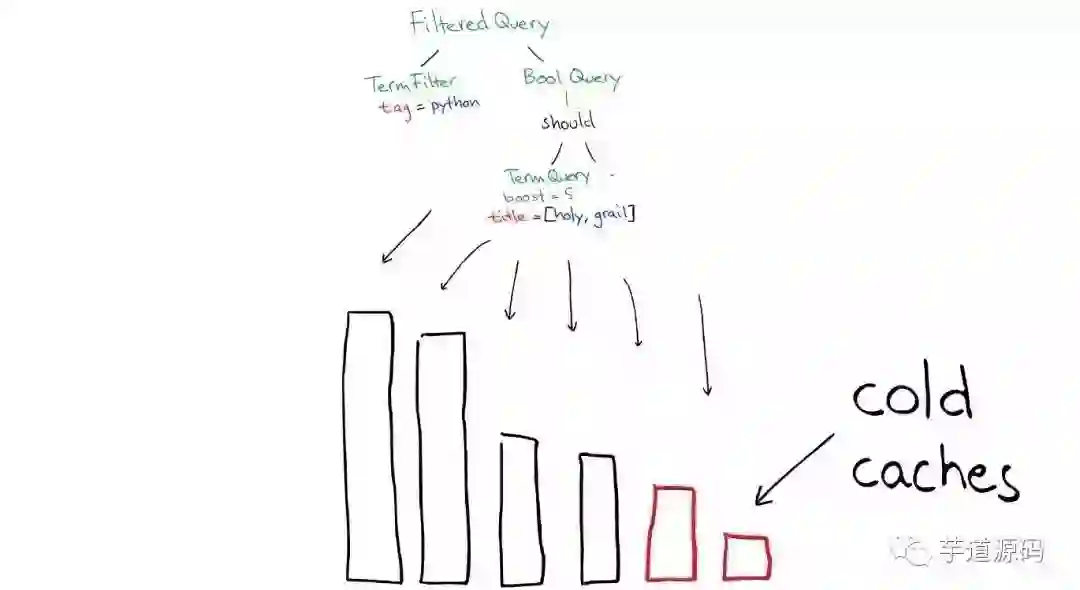 Filtered Query
TermFilter
tag = python
Bool Query
should
TermQuery
boost = 5
title = [holy, grail]
cold
caches
芋道源码